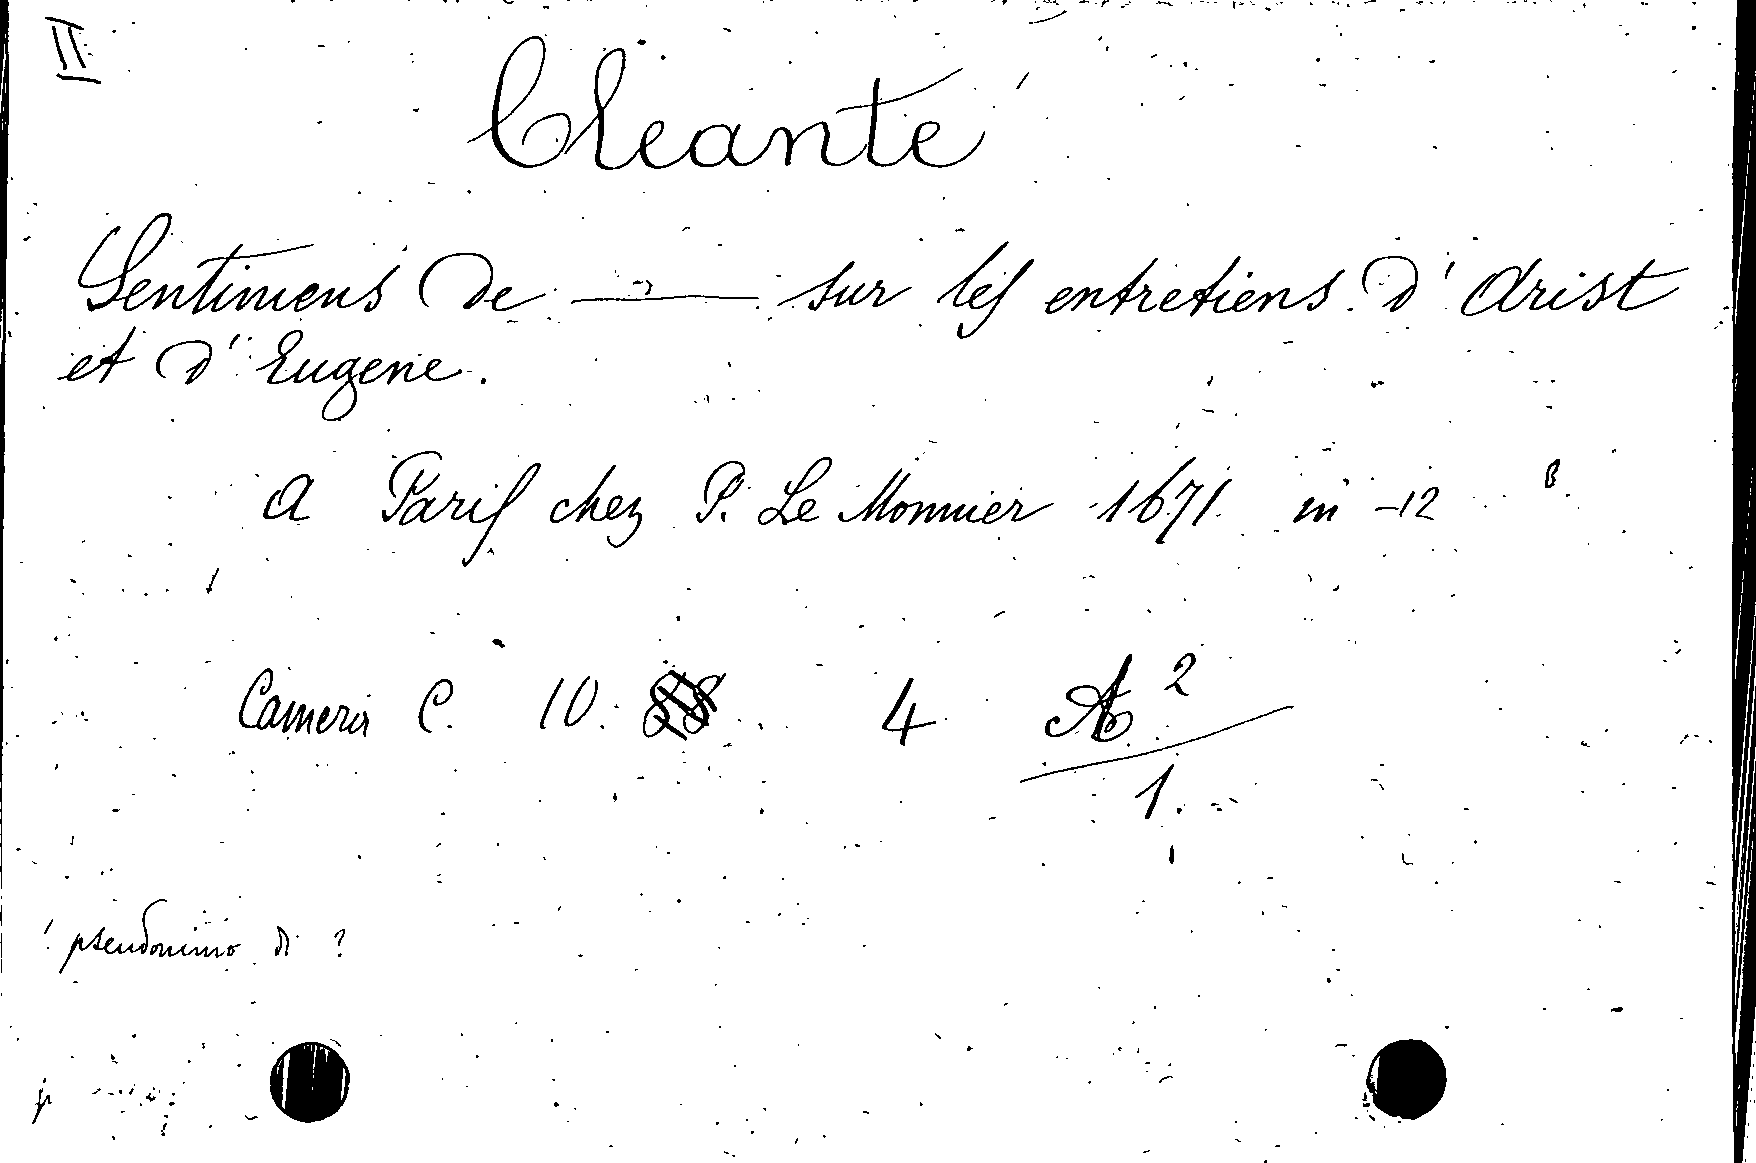 II
Cleante
Sentimens de — sur les entretiens d' Arist
et d' Eugene.
A Paris chez P. Le Monnier 1671 in -12 B
Camera C. 10. 4 A 2
1.
' pseudonimo di ?